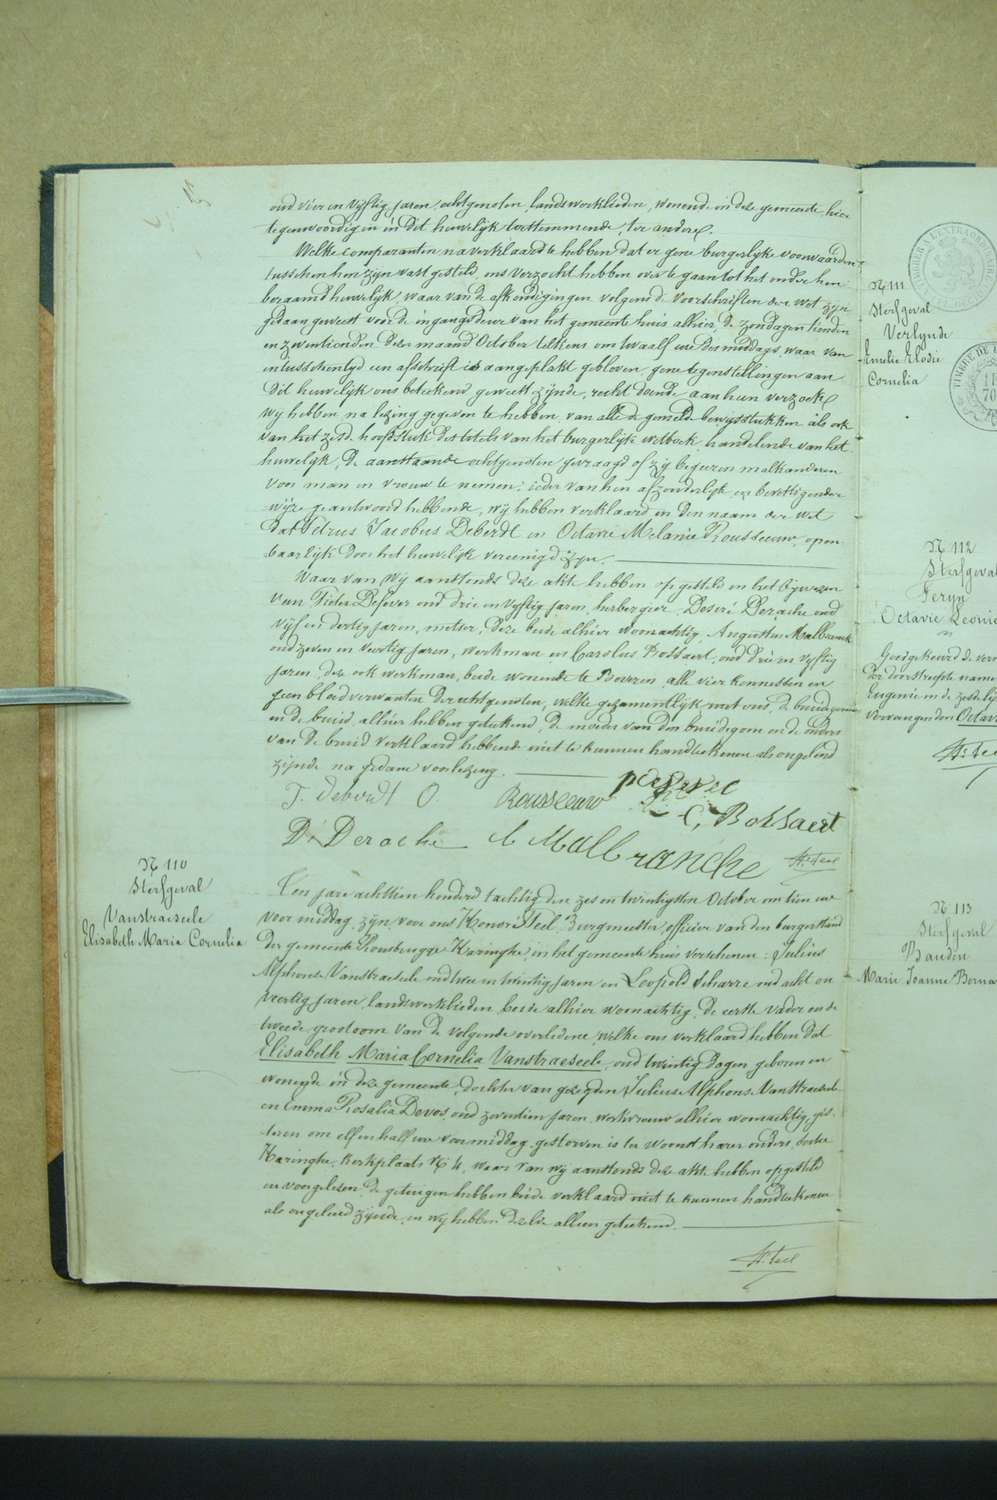 oud vier en vyftig jaren, echtgenoten, landswerklieden, wonende in deze gemeente hier
tegenwoordig en in dit huwelijk toestemmende, ter andere.
Welke comparanten na verklaard te hebben dat er geene burgerlyke voorwaarden
tusschen hen zyn vast gesteld, ons verzocht hebben over te gaan tot het onder hen
beraamd huwelijk, waar van de afkondigingen volgens de voorschriften der wet zyn
gedaan geweest voor de ingangsdeure van het gemeente huis alhier, de zondagen tienden
en zeventienden dezer maand October telkens om twaalf ure des middags, waar van
intusschentyd een afschrift is aangeplakt gebleven geene tegenstellingen aan
dit huwelijk ons beteekend geweest zynde, recht doende aan hun verzoek
Wy hebben na lezing gegeven te hebben van alle de gemelde bewysstukken als ook
van het zesde hoofdstuk des titels van het burgerlyk wetboek handelende van het
huwelijk, de aanstaande echtgenoten gevraagd of zy begeeren malkanderen
voor man en vrouw te nemen; ieder van hen afzonderlyk en bevestigender
wyze geantwoord hebbende, wy hebben verklaard in den naam der wet
dat Petrus Jacobus Deberdt en Octavie Melanie Rousseeuw, open-
baarlyk door het huwelijk vereenigd zyn.
Waar van wy aanstonds deze akte hebben opgesteld in het bywezen
van Pieter Desever oud drie en vyftig jaren, herbergier, Desiré Derache oud
vyf en dertig jaren, metser, deze beide alhier woonachtig, Augustus Malbranck
oud zeven en veertig jaren, werkman en Carolus Bossaert, oud drie en vyftig
jaren, deze ook werkman, beide wonende te Beveren, alle vier kennissen en
geen bloedverwanten der echtgenoten, welke gezamentlyk met ons, de bruidegom
en de bruid, alhier hebben geteekend, de moeder van den bruidegom en de ouders
van de bruid verklaard hebbende niet te kunnen handteekenen als ongeleerd
zynde na gedane voorlezing.
J. deberdt O. Rousseeuw
C, Bossaert
D. Derache Malbranche Hr. Steel
N 110
Sterfgeval
Vanstraeseele
Elisabeth Maria Cornelia
Ten jare achttien honderd tachtig den zes en twintigsten October om tien ure
voor middag, zyn voor ons Henri Steel Burgmeester, officier van den burgerstand
der gemeente Rousbrugge Haringhe, in het gemeente huis verschenen: Julius
Alphonse Vanstraeseele oud twee en twintig jaren en Leopold Scharre oud acht en
veertig jaren landswerklieden, beide alhier woonachtig, de eerste vader en de
tweede grootoom van de volgende overledene, welke ons verklaard hebben dat
Elisabeth Maria Cornelia Vanstraeseele, oud twintig dagen geboren en
wonende in deze gemeente, dochter van gezegden Julius Alphons Vanstraeseele
en Emma Rosalia Devos, oud zeventien jaren, werkvrouw alhier woonachtig, gis-
teren om elf en half ure voormiddag, gestorven is ter woonst harer ouders, sectie
Haringhe, Kerkplaats No 4, waar van wy aanstonds deze akte hebben opgesteld
en voorgelezen; de getuigen hebben beide verklaard niet te kunnen handteekenen
als ongeleerd zynde, en wy hebben dezelve alleen geteekend.
Hr. Steel
N 111
Sterfgeval
Verlynde
Emelie Elodie
Cornelia
N 112
Sterfgeval
Feryn
Octavie Leonie
Goedgekeurd de ver
der doorstreepte name
Eugenie in de zesde ly
vervangen door Octav
Hr. Stee
N 113
Sterfgeval
Bauden
Marie Joanne Berna